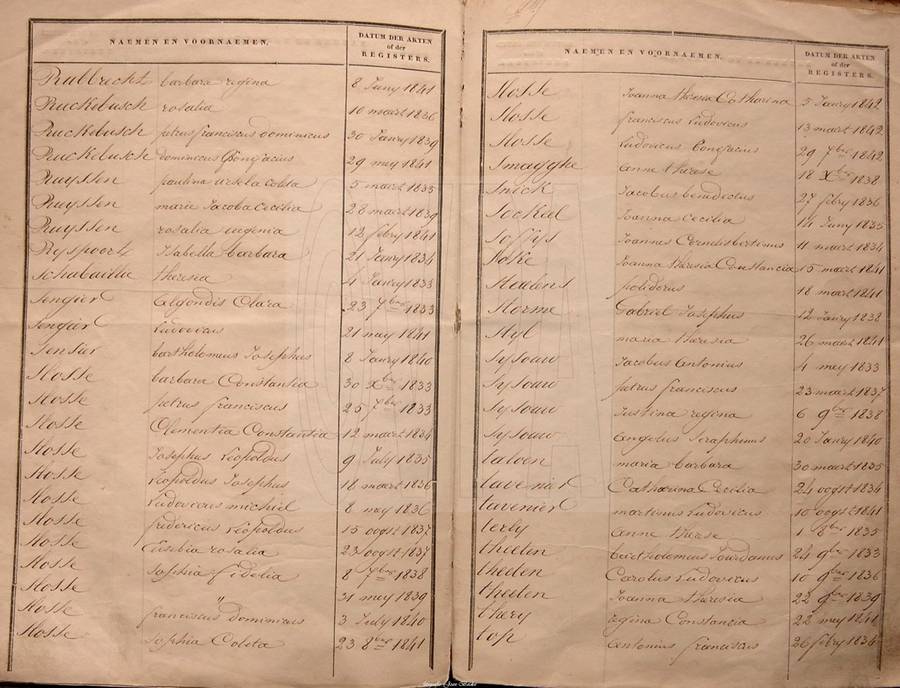 NAEMEN EN VOORNAEMEN.
DATUM DER AKTEN
of der
REGISTERS.
Rubbrecht barbara regina 8 Juny 1841
Ruckebusch rosalia 10 maart 1836
Ruckebusch petrus franciscus dominicus 30 Janry 1839
Ruckebusch dominicus Bonifacius 29 mey 1841
Ruyssen paulina ursela Coleta 5 maart 1835
Ruyssen marie Jacoba Cecilia 28 maart 1839
Ruyssen rosalia eugenia 12 febry 1841
Ryspoort Isabella barbara 21 Janry 1834
Schabaillie theresia 4 Janry 1833
Sengier aldegondis Clara 23 7bre 1833
Sengier Ludovicus 21 mey 1841
Sensier bartholomeus Josephus 8 Janry 1840
Slosse barbara Constantia 30 Xbre 1833
Slosse petrus franciscus 25 7bre 1833
Slosse Clementia Constantia 12 maart 1834
Slosse Josephus Leopoldus 9 July 1835
Slosse Leopoldus Josephus 18 maart 1836
Slosse Ludovicus michiel 8 mey 1836
Slosse fredericus Leopoldus 15 oogst 1837
Slosse Eusebia rosalia 23 oogst 1837
Slosse Sophia fidelia 8 7bre 1838
Slosse " 21 mey 1839
Slosse franciscus Dominicus 3 July 1840
Slosse Sophia Coleta 23 8bre 1841
NAEMEN EN VOORNAEMEN.
DATUM DER AKTEN
of der
REGISTERS.
Slosse Joanna theresia Catharina 5 Janry 1842
Slosse franciscus Ludovicus 13 maart 1842
Slosse Ludovicus Bonifacius 29 7bre 1842
Smagghe anne therese 18 Xbre 1838
Snick Jacobus benedictus 27 febry 1836
Sockeel Joanna Cecilia 14 Juny 1835
Soffys Joannus Cornelis bertinus 11 maart 1834
Soke Joanna theresia Constancia 15 maart 1841
Steelens polidorus 18 maart 1841
Storme Gabriel Josephus 12 Janry 1838
Styl maria theresia 26 maart 1841
Sysouw Jacobus antonius 4 mey 1833
Sysouw petrus franciscus 23 maart 1837
Sysouw Justina regina 6 9bre 1838
Sysouw Angelus Seraphinus 20 Janry 1840
talven maria barbara 30 maart 1835
tavenier Catharina Cecilia 24 oogst 1834
tavenier martinus Ludovicus 10 oogst 1841
terby Anne therese 1 8bre 1835
theeten Bartholomeus Jourdanus 24 9bre 1833
theeten Carolus Ludovicus 10 9bre 1836
theeten Joanna theresia 22 9bre 1839
thery regina Constancia 22 mey 1841
top Antonius franciscus 26 febry 1836